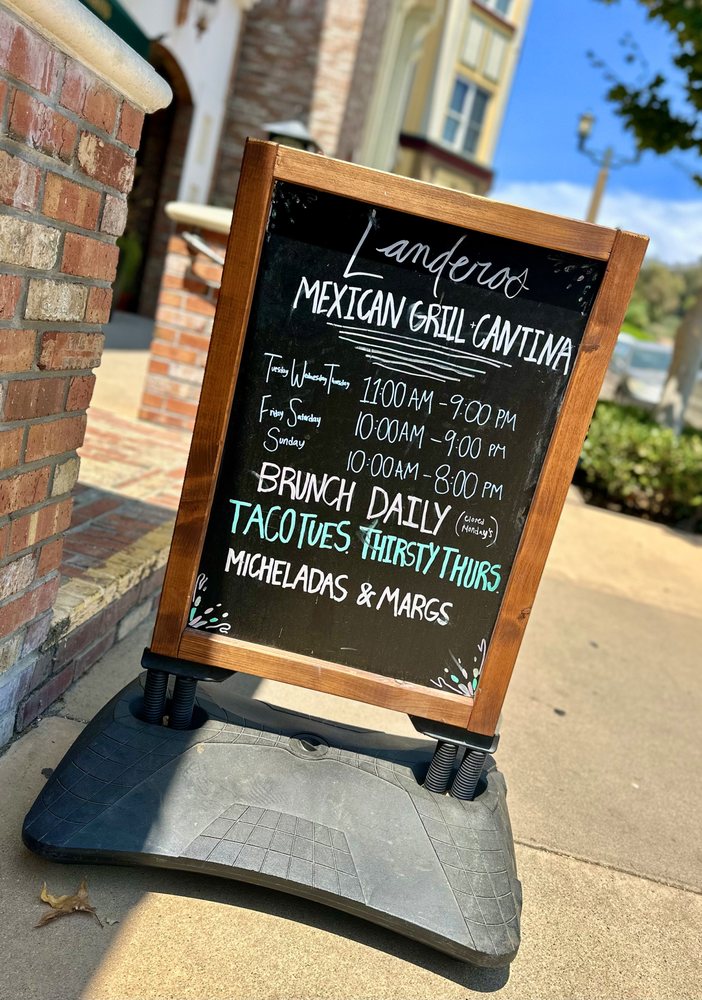 Landeros
MEXICAN GRILL + CANTINA
Tuesday Wednesday Thursday 11:00 AM - 9:00 PM
Friday Saturday 10:00 AM - 9:00 PM
Sunday 10:00 AM - 8:00 PM
BRUNCH DAILY (closed Monday's)
TACO TUES. THIRSTY THURS.
MICHELADAS & MARGS